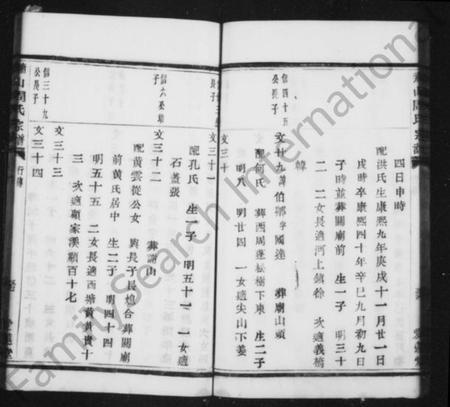 四日申時
配洪氏生康熙九年庚戌十一月廿一日
戌時卒康熙四十年辛巳九月初九日
子時並葬關廟前 生一子 明三十
二 二女長適河上鎮徐 次適義橋
韓
信四十五
公長子
文廿九 諱伯 字國達 葬廟山頭
配何氏 葬西周 下東 生二子
明九 明廿四 一女適尖山下姜
文三十
長子
文三十一
配孔氏 生一子 明五十一 一女適
石蓋張
信六公
子
文三十二 葬 山
配黃雲從公女 與長子 合葬關廟
前黃氏居中 生二子 明四十四
明五十五 二女長適西塘黃 十
三 次適顧家溪顧百十七
文三十三
信三十九
公長子
文三十四
山周氏宗譜
行傳
FamilySearch International